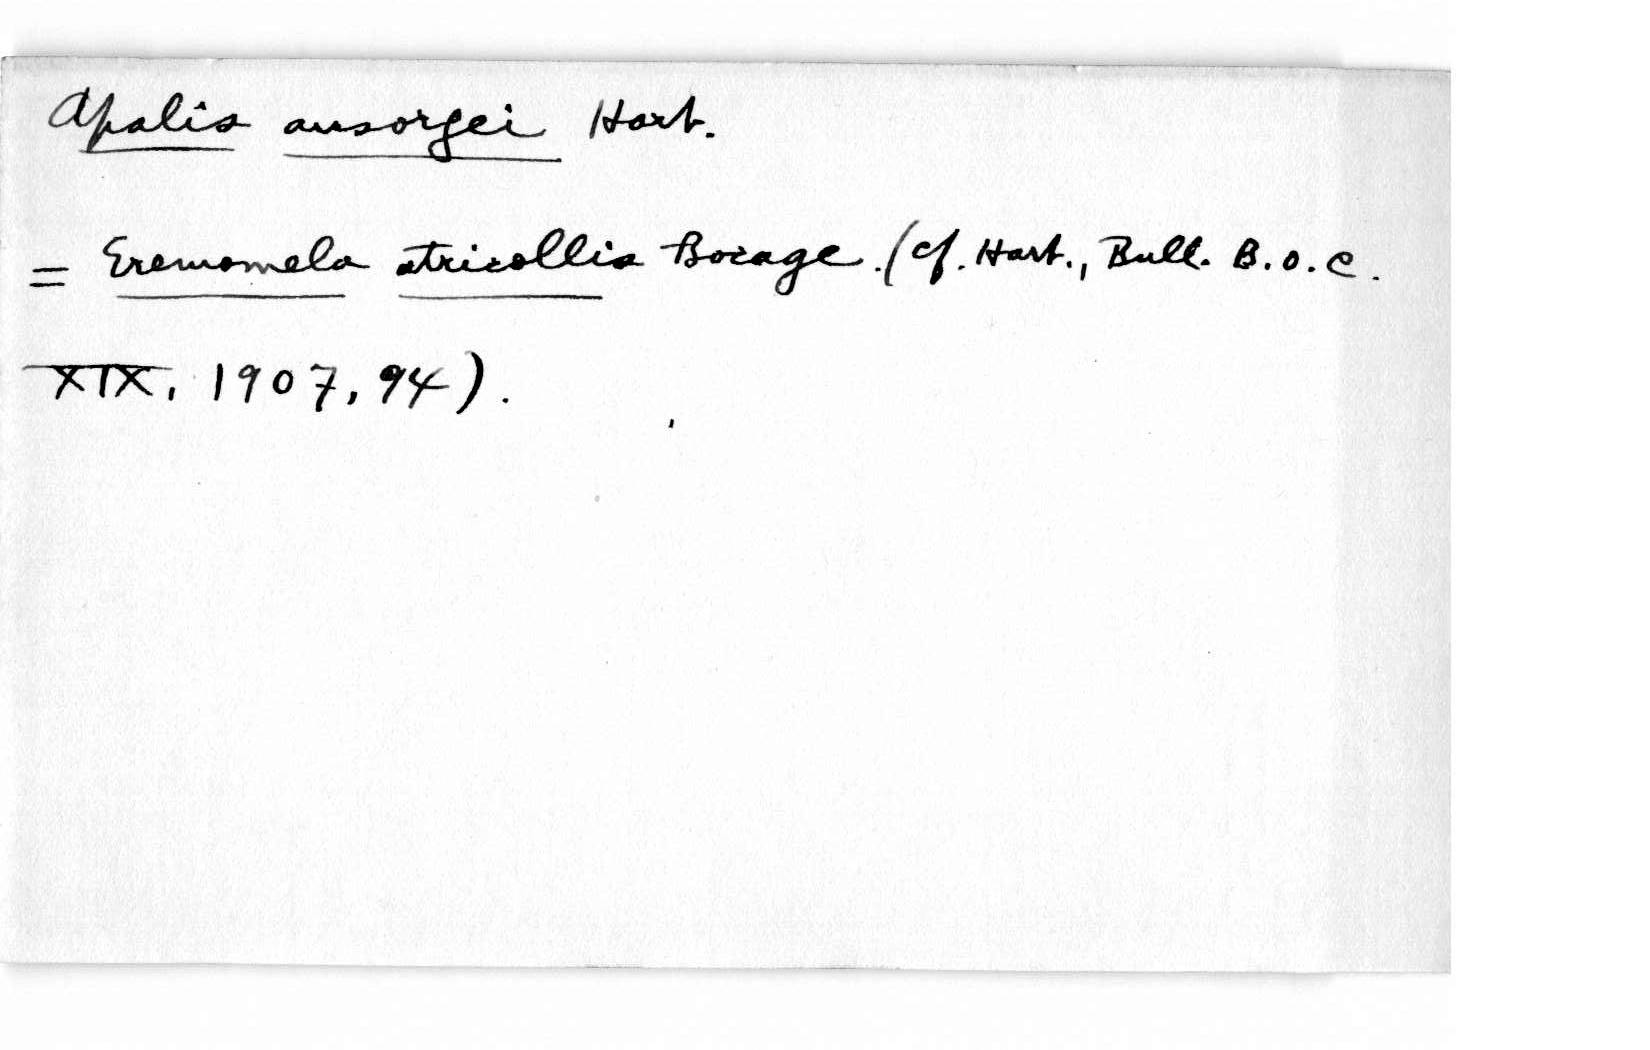 Apalis ansorgei Hart.
= Eremomela atricollis Bocage. (cf. Hart., Bull. B.O.C.
XIX, 1907, 94).